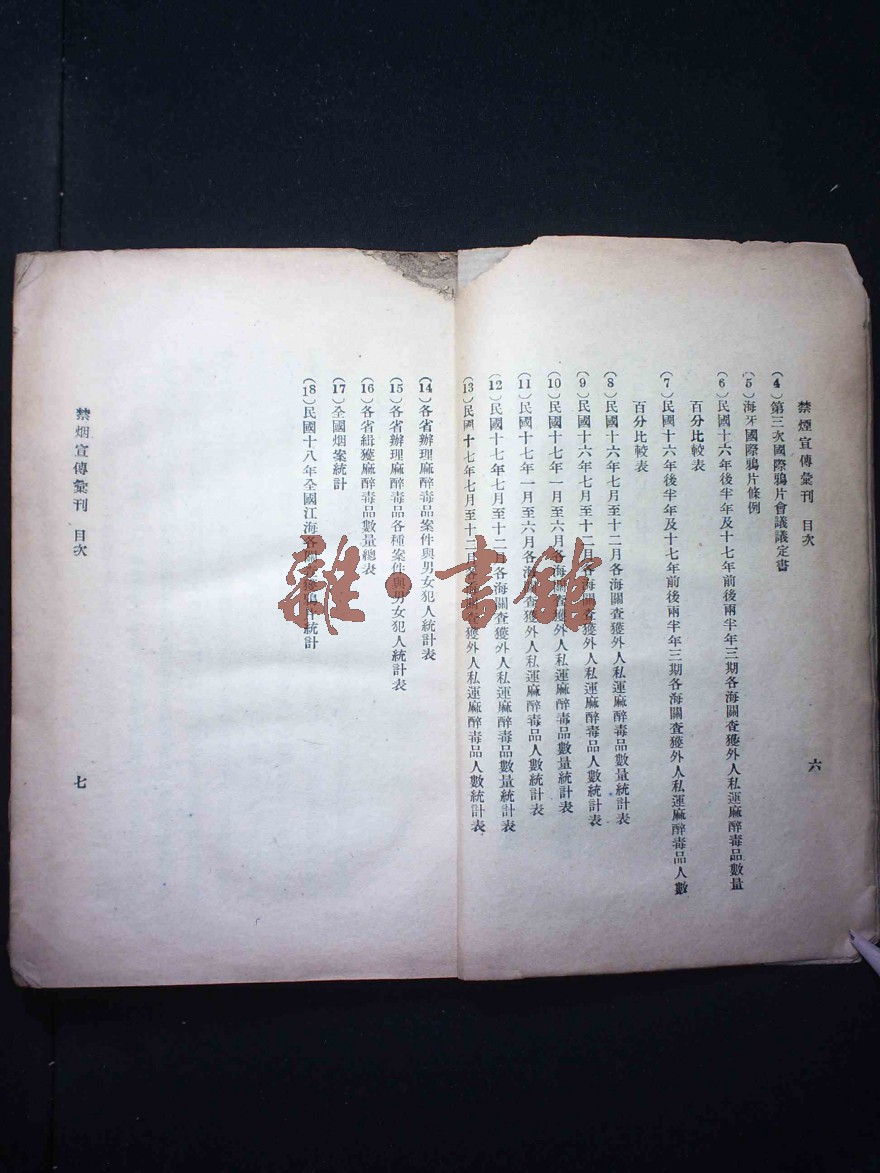 禁煙宣傳彙刊 目次
六
(4)第三次國際鴉片會議議定書
(5)海牙國際鴉片條例
(6)民國十六年後半年及十七年前後兩半年三期各海關查獲外人私運麻醉毒品數量
百分比較表
(7)民國十六年後半年及十七年前後兩半年三期各海關查獲外人私運麻醉毒品人數
百分比較表
(8)民國十六年七月至十二月各海關查獲外人私運麻醉毒品數量統計表
(9)民國十六年七月至十二月各海關查獲外人私運麻醉毒品人數統計表
(10)民國十七年一月至六月各海關查獲外人私運麻醉毒品數量統計表
(11)民國十七年一月至六月各海關查獲外人私運麻醉毒品人數統計表
(12)民國十七年七月至十二月各海關查獲外人私運麻醉毒品數量統計表
(13)民國十七年七月至十二月各海關查獲外人私運麻醉毒品人數統計表
(14)各省辦理麻醉毒品案件與男女犯人統計表
(15)各省辦理麻醉毒品各種案件與男女犯人統計表
(16)各省緝獲麻醉毒品數量總表
(17)全國烟案統計
(18)民國十八年全國江海各關件統計
禁烟宣傳彙刊 目次
七
雜·書館